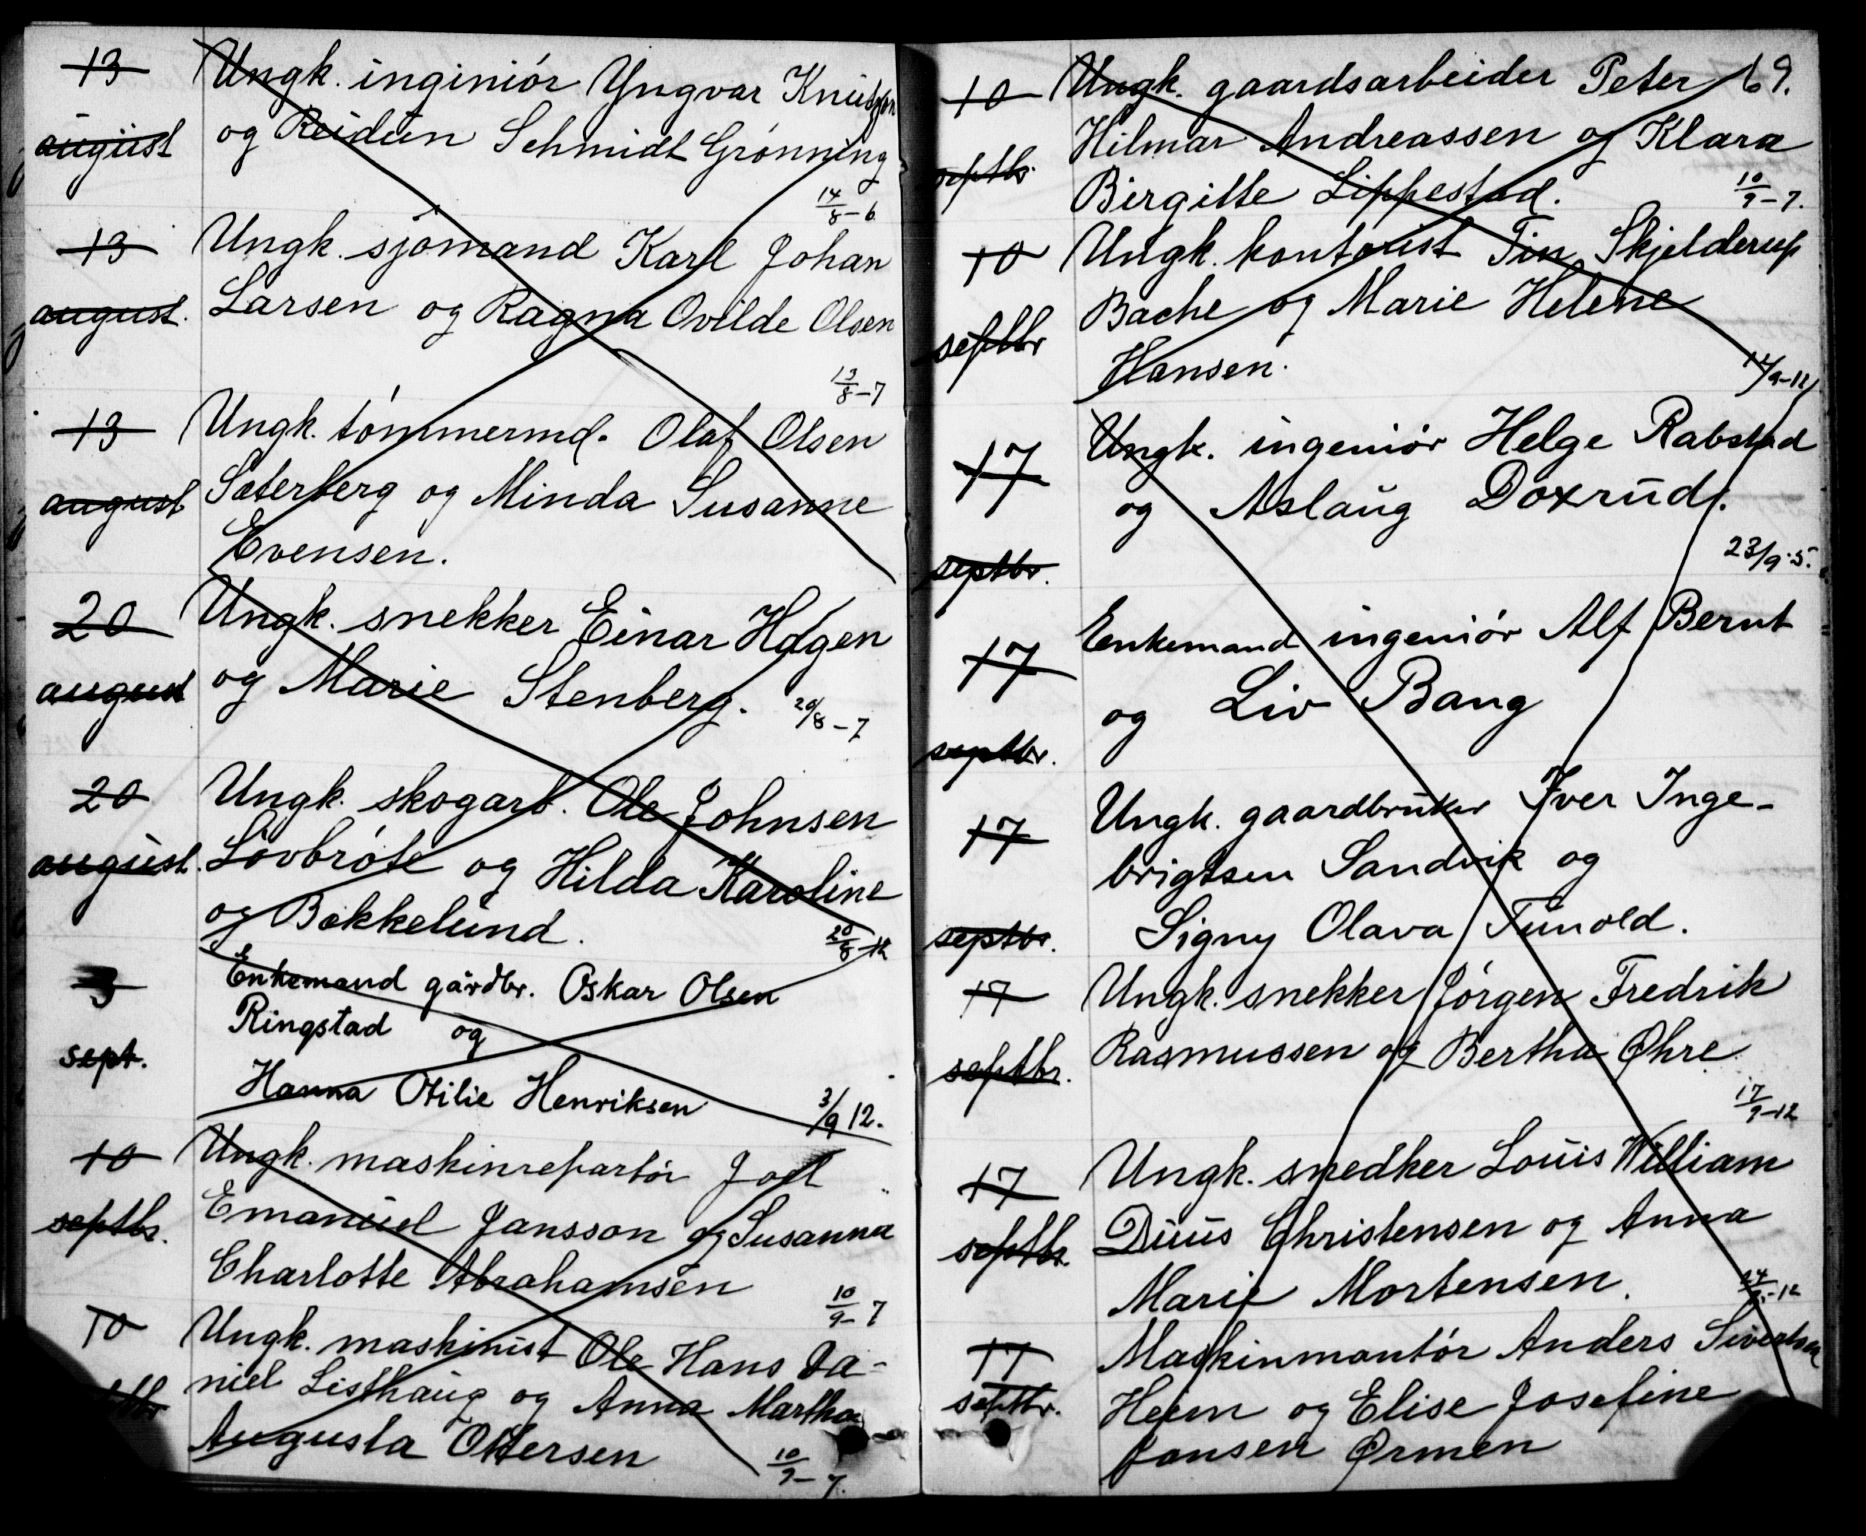 13 Ungk. inginiör Yngvar Knutzen
august og Reidun Schmidt Grönning
14/8-6
13 Ungk. sjömand Karl Johan
august. Larsen og Ragna Ovilde Olsen
13/8-7
13 Ungk. tömmermd. Olaf Olsen
august Sæterberg og Minda Susanne
Evensen.
20 Ungk. snekker Einar Hagen
august og Marie Stenberg. 20/8-7
20 Ungk. skogarb. Ole Johnsen
august. Lövbröte og Hilda Karoline
og Bækkelund. 20/8-12
3 Enkemand gårdbr. Oskar Olsen
Ringstad og
sept. Hanna Otilie Henriksen 3/9 12.
10 Ungk. maskinrepartör Joel
septbr. Emanuel Jansson og Susanna
Charlotte Abrahamsen 10/9-7
10 Ungk. maskinist Ole Hans Da-
niel Listhaug og Anna Martha
Augusta Ottersen 10/9-7.
69.
10 Ungk. gaardsarbeider Peter
Hilmar Andreassen og Klara
septbr. Birgitte Lippestad. 10/9-7.
10 Ungk. kontorist Tin Skjelderup
Bache og Marie Helene
septbr Hansen.
14/9-12
17 Ungk. ingeniör Helge Rabstad
og Aslaug Doxrud.
septbr. 23/9-5.
17 Enkemand ingeniör Alf Bernt
og Liv Bang
septbr.
17 Ungk. gaardbruker Iver Inge-
brigtsen Sandvik og
septbr. Signy Olava Tunold.
17 Ungk. snekker Jörgen Fredrik
septbr. Rasmussen og Bertha Øhre
17/9-12
17 Ungk. snedker Louis William
septbr. Duus Christensen og Anna
Marie Mortensen.
17 Maskinmontör Anders Sivertsen
septbr. Heim og Elise Josefine
Jansen Ørmen